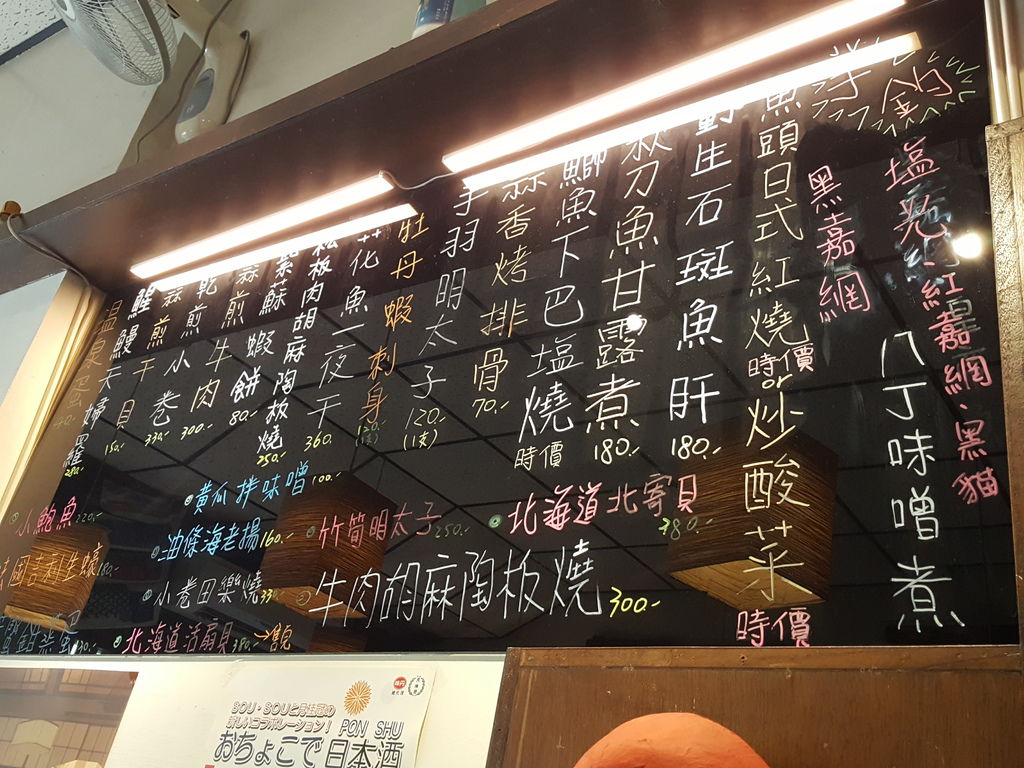 鍋
塩
紅嘉網、黑貓
八丁味噌煮
黑嘉網
魚頭日式紅燒
時價
or
炒酸菜
時價
對生石斑魚肝
180.-
秋刀魚甘露煮
180.-
鰤魚下巴塩燒
時價
蒜香烤排骨
70.-
手羽明太子
120.-
(1支)
牡丹蝦刺身
花魚一夜干
360.
松板肉胡麻陶板燒
250.-
紫蘇蝦餅
80.-
蒜煎牛肉
300.-
乾煎小卷
330.-
鰻干
150.-
溫泉蛋
黃瓜拌味噌 100.-
小鮑魚 220.-
油條海老揚 160.-
竹筒明太子 250.-
北海道北寄貝 380.-
小卷田樂燒 330.-
牛肉胡麻陶板燒 300.-
北海道活扇貝 380.- →售完
SOU・SOUと
新しいコラボレーション!
PON SHU
おちょこで日本酒